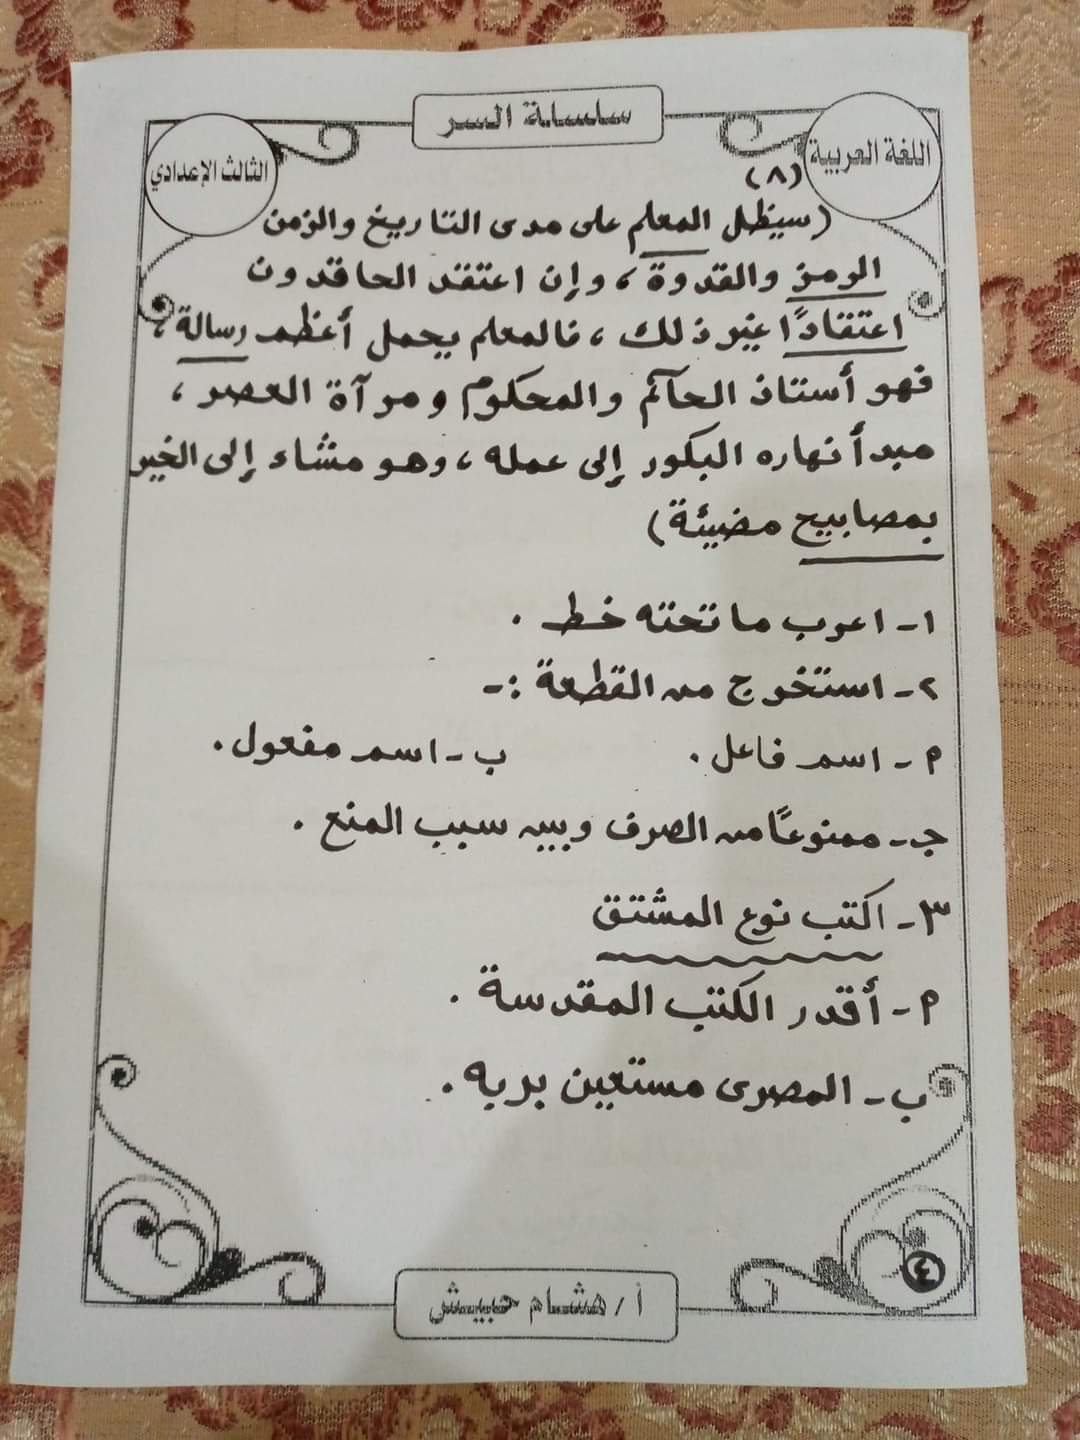 سلسلة السر
اللغة العربية
الثالث الإعدادي
(٨)
(سيظل المعلم على مدى التاريخ والزمن
الرمز والقدوة، وإن اعتقد الحاقدون
اعتقادًا غير ذلك، فالمعلم يحمل أعظم رسالة،
فهو أستاذ الحاكم والمحكوم ومرآة العصر،
مبدأ نهاره البكور إلى عمله، وهو مشاء إلى الخير
بمصابيح مضيئة)
١- اعرب ما تحته خط.
٢- استخرج من القطعة :-
م - اسم فاعل. ب - اسم مفعول.
جـ - ممنوعًا من الصرف وبين سبب المنع.
٣- اكتب نوع المشتق
م - أقدر الكتب المقدسة.
ب - المصرى مستعين بربه.
٤
أ / هشام حبيش